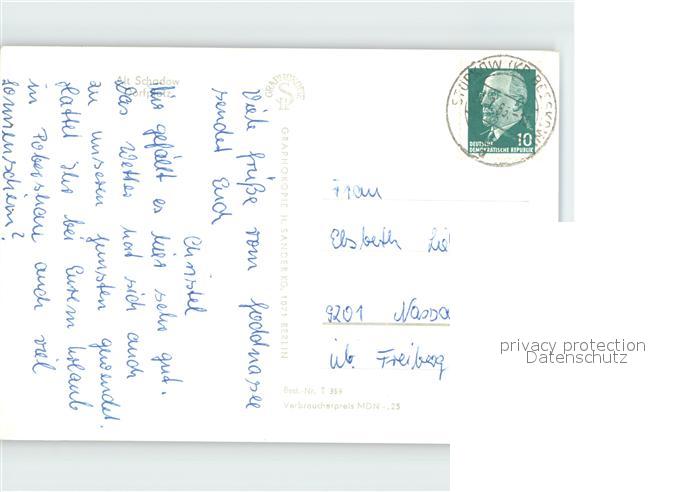 Alt Schadow
Dorfplatz
GRAPHOKOPIE
Viele Grüße vom Goddnasee
sendet Euch
Christel
Uns gefällt es hier sehr gut.
Das Wetter hat sich auch
zu unseren gunsten gewendet.
Hattet Ihr bei Eurem Urlaub
in Pobershau auch viel
Sonnenschein?
GRAPHOKOPIE H. SANDER KG, 1071 BERLIN
Best.-Nr. T 359
Verbraucherpreis MDN -,25
STORKOW (KR BEESKOW)
DEUTSCHE
DEMOKRATISCHE REPUBLIK
10
Frau
Elsbeth
9201 Nassa
üb. Freiberg
privacy protection
Datenschutz